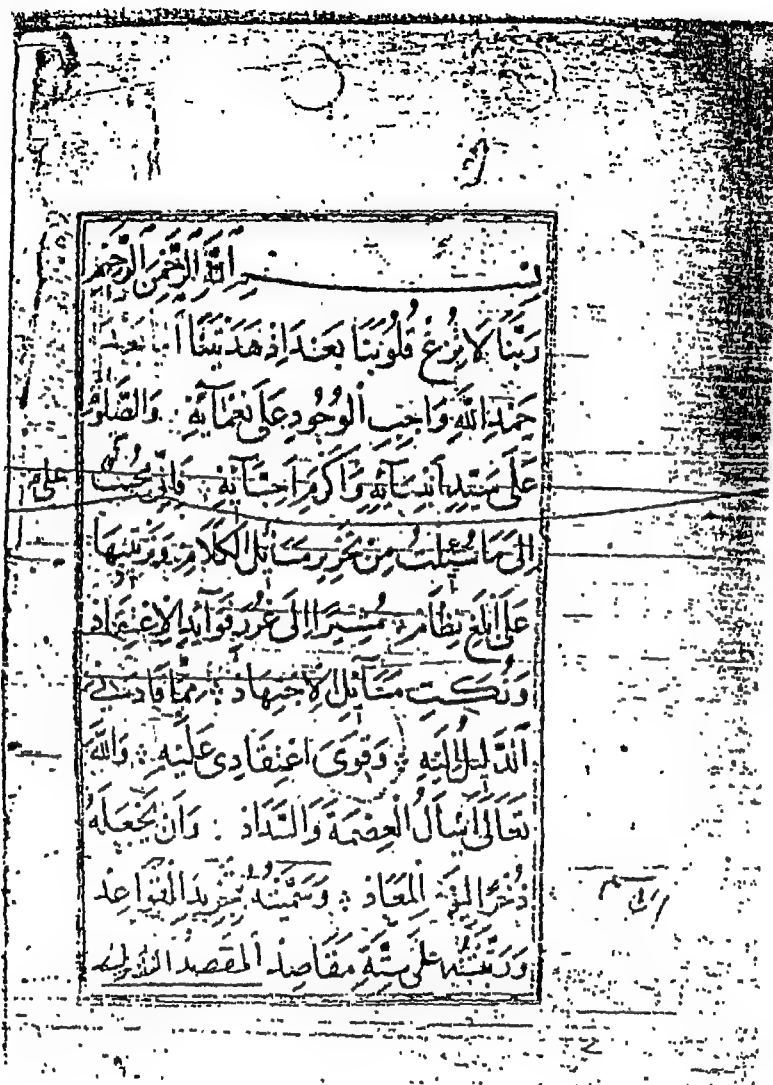 بِسْمِ اللَّهِ الرَّحْمٰنِ الرَّحِيمِ
رَبَّنَا لَا تُزِغْ قُلُوبَنَا بَعْدَ اِذْ هَدَيْتَنَا اَمَّا بَعْدَ
حَمْدِ اللَّهِ وَاجِبِ الْوُجُودِ عَلَى نَعْمَآئِهِ وَالصَّلٰوةِ
عَلَى سَيِّدِ اَنْبِيَآئِهِ وَاَكْرَمِ اَحِبَّآئِهِ فَاِنِّي مُجِيبٌ
اِلَى مَا سُئِلْتُ مِنْ تَحْرِيرِ مَسَآئِلِ الْكَلَامِ وَتَرْتِيبِهَا
عَلَى اَبْلَغِ نِظَامٍ مُشِيرًا اِلَى غُرَرِ فَوَآئِدِ الْاِعْتِمَادِ
وَنُكَتِ مَسَآئِلِ الْاِجْتِهَادِ مِمَّا قَادَنِي
اَلدَّلِيلُ اِلَيْهِ وَقَوِيَ اعْتِقَادِي عَلَيْهِ وَاللَّهَ
تَعَالَى اَسْأَلُ الْعِصْمَةَ وَالسَّدَادَ وَاَنْ يَجْعَلَهُ
ذُخْرًا لِيَوْمِ الْمَعَادِ وَسَمَّيْتُهُ بِتَجْرِيدِ الْعَقَآئِدِ
وَرَتَّبْتُهُ عَلَى سِتَّةِ مَقَاصِدَ اَلْمَقْصَدُ الْاَوَّلُ